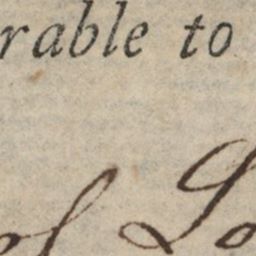 rable to
of Lo